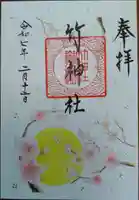 奉拝
竹神社
令和七年 二月十三日